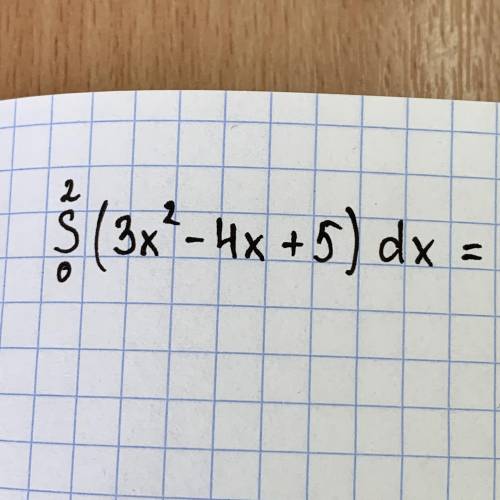 ∫₀² (3x² - 4x + 5) dx =